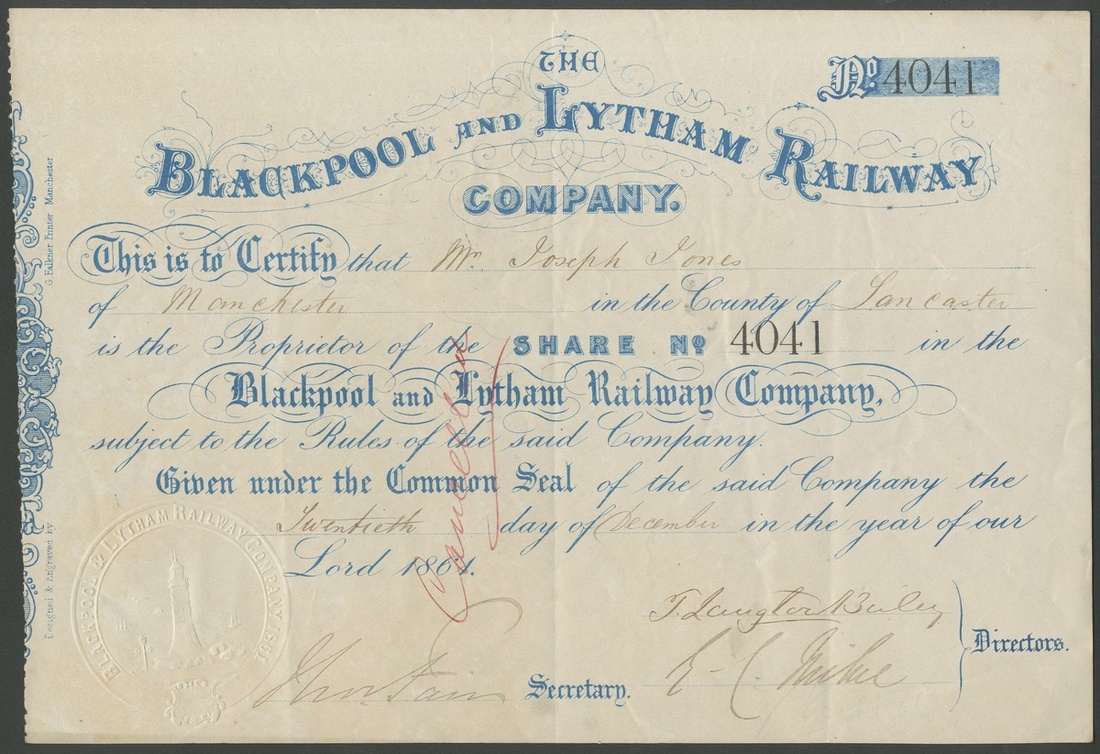 THE
No. 4041
BLACKPOOL AND LYTHAM RAILWAY
COMPANY.
This is to Certify that Mr. Joseph Jones
of Manchester in the County of Lancaster
is the Proprietor of the SHARE No 4041 in the
Blackpool and Lytham Railway Company,
subject to the Rules of the said Company.
Given under the Common Seal of the said Company the
Twentieth day of December in the year of our
Lord 1861.
Cancelled
BLACKPOOL & LYTHAM RAILWAY COMPANY 1861
T. Langton Birley
Directors.
Secretary.
Designed & Engraved by G. Falkner Printer Manchester